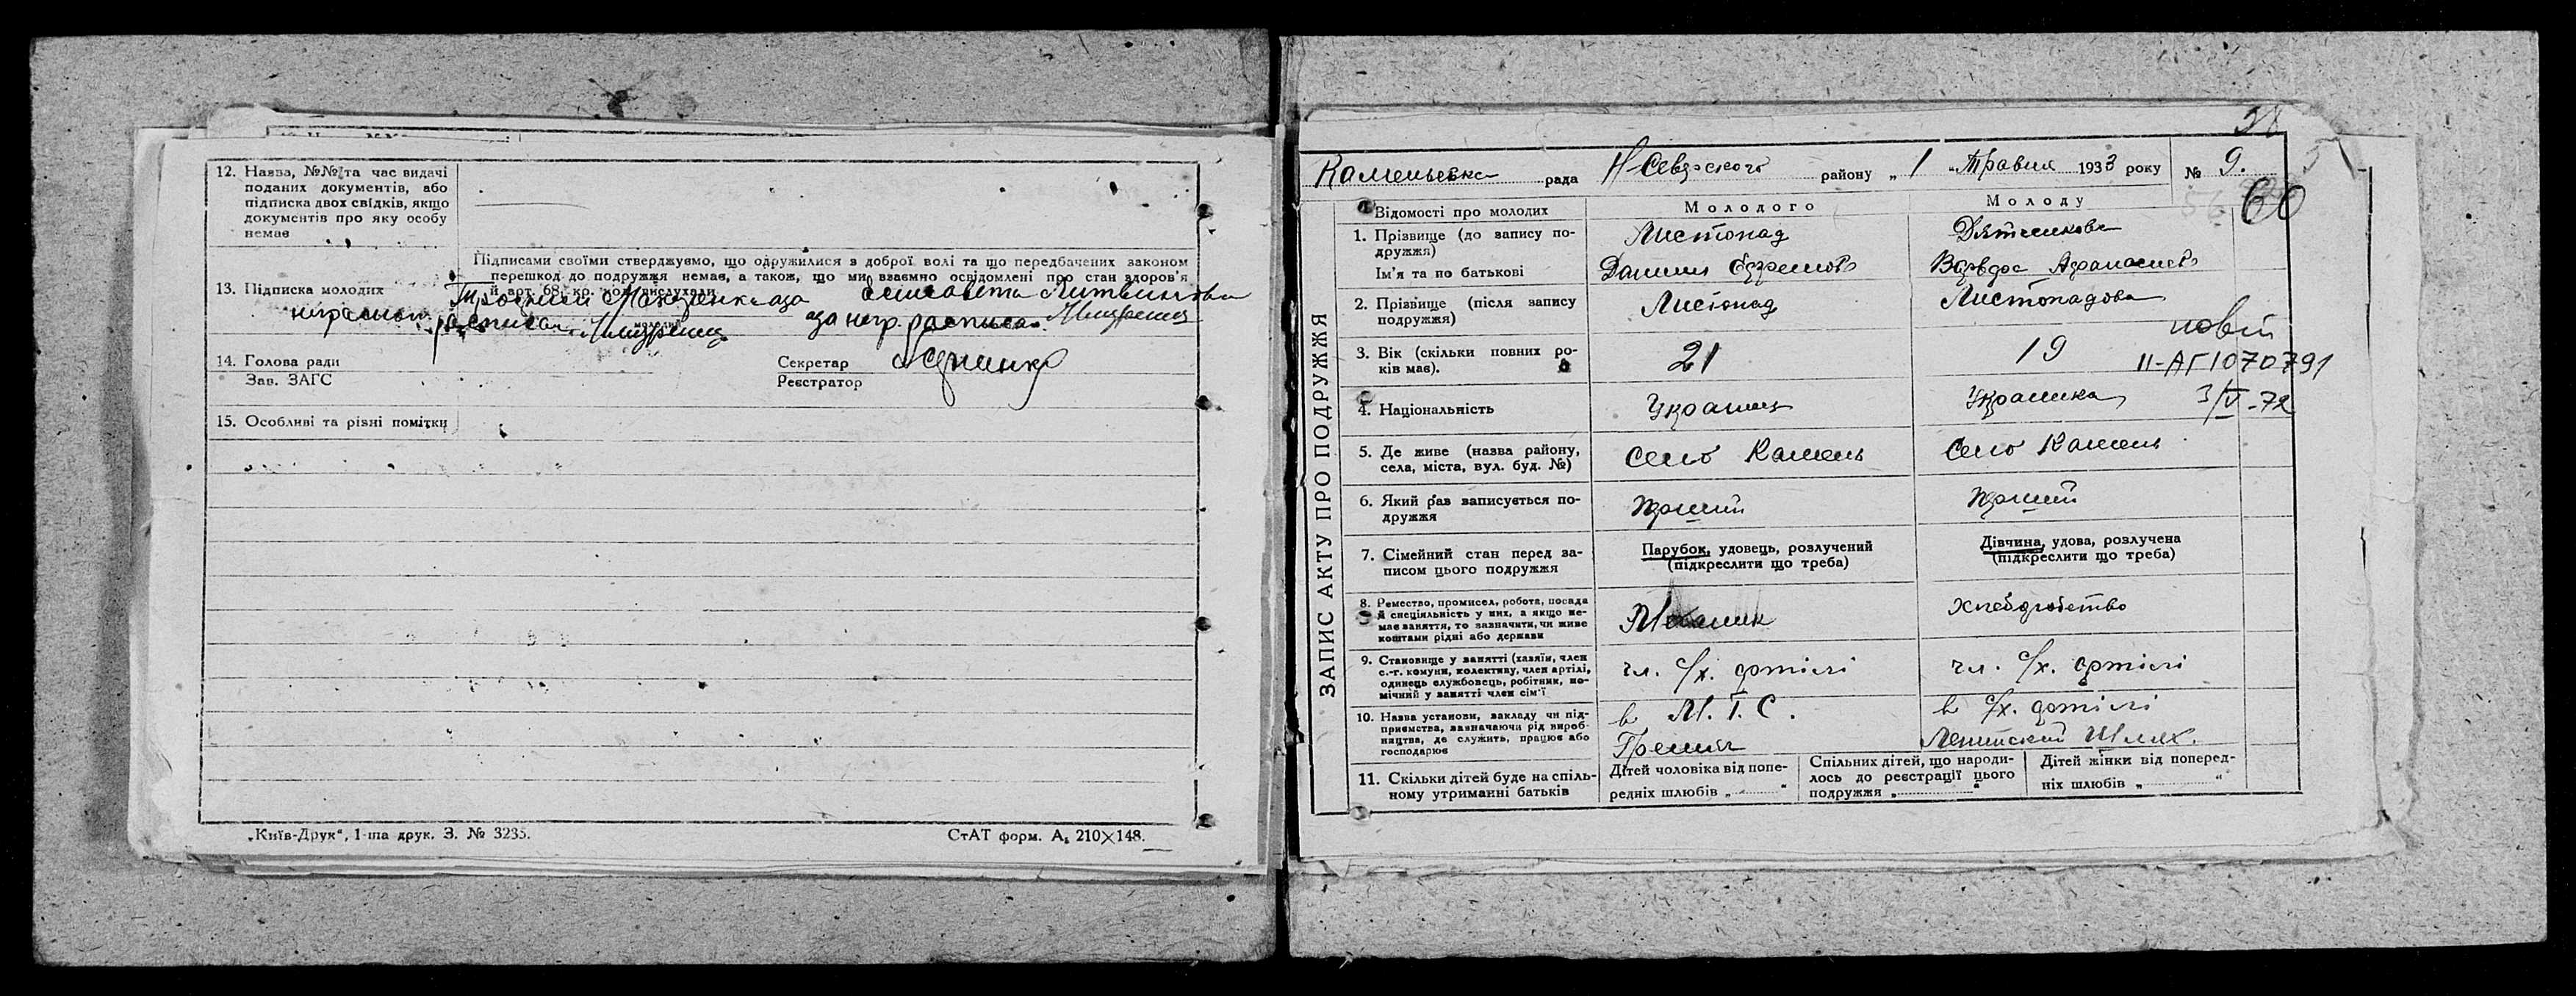 12. Назва, №№ та час видачі
поданих документів, або
підписка двох свідків, якщо
документів про яку особу
немає
Підписами своїми стверджуємо, що одружилися з доброї волі та що передбачених законом
перешкод до подружжя немає, а також, що ми взаємно освідомлені про стан здоров'я
й арт. 68, кр. код. вислухали
13. Підписка молодих
за Елисавета Литвинова
неграмотн. расписался
за негр. расписа.
14. Голова ради
Зав. ЗАГС
Секретар
Реєстратор
15. Особливі та різні помітки
„Київ-Друк“, 1-ша друк. З. № 3235.
СтАТ форм. А, 210×148.
Каменьська рада Н-Северского району „1 „Травня 1933 року № 9.
60
ЗАПИС АКТУ ПРО ПОДРУЖЖЯ
Відомості про молодих
Молодого
Молоду
1. Прізвище (до запису по-
дружжя)
Листопад
Дятликова
Ім'я та по батькові
Данило Ефремов
Варвара Афанасиев
2. Прізвище (після запису
подружжя)
Листопад
Листопадова
3. Вік (скільки повних ро-
ків має).
21
19
повт
II-АГ1070791
3/V-72
4. Національність
Украинец
Украинка
5. Де живе (назва району,
села, міста, вул. буд. №)
Село Камень
Село Камень
6. Який раз записується по-
дружжя
перший
перший
7. Сімейний стан перед за-
писом цього подружжя
Парубок, удовець, розлучений
(підкреслити що треба)
Дівчина, удова, розлучена
(підкреслити що треба)
8. Ремество, промисел, робота, посада
й спеціяльність у них, а якщо не-
має заняття, то зазначити, чи живе
коштами рідні або держави
Механик
хлебробство
9. Становище у занятті (хазяїн, член
с.-г. комуни, колективу, член артілі,
одинець службовець, робітник, по-
мічний у занятті член сім'ї
чл. с/х. артілі
чл. с/х. артілі
10. Назва установи, закладу чи під-
приємства, зазначаючи рід вироб-
ництва, де служить, працює або
господарює
в М.Т.С.
Гремяч
в с/х. артілі
Ленінский Шлях.
11. Скільки дітей буде на спіль-
ному утриманні батьків
Дітей чоловіка від попе-
редніх шлюбів „ “
Спільних дітей, що народи-
лось до реєстрації цього
подружжя „ “
Дітей жінки від поперед-
ніх шлюбів „ “